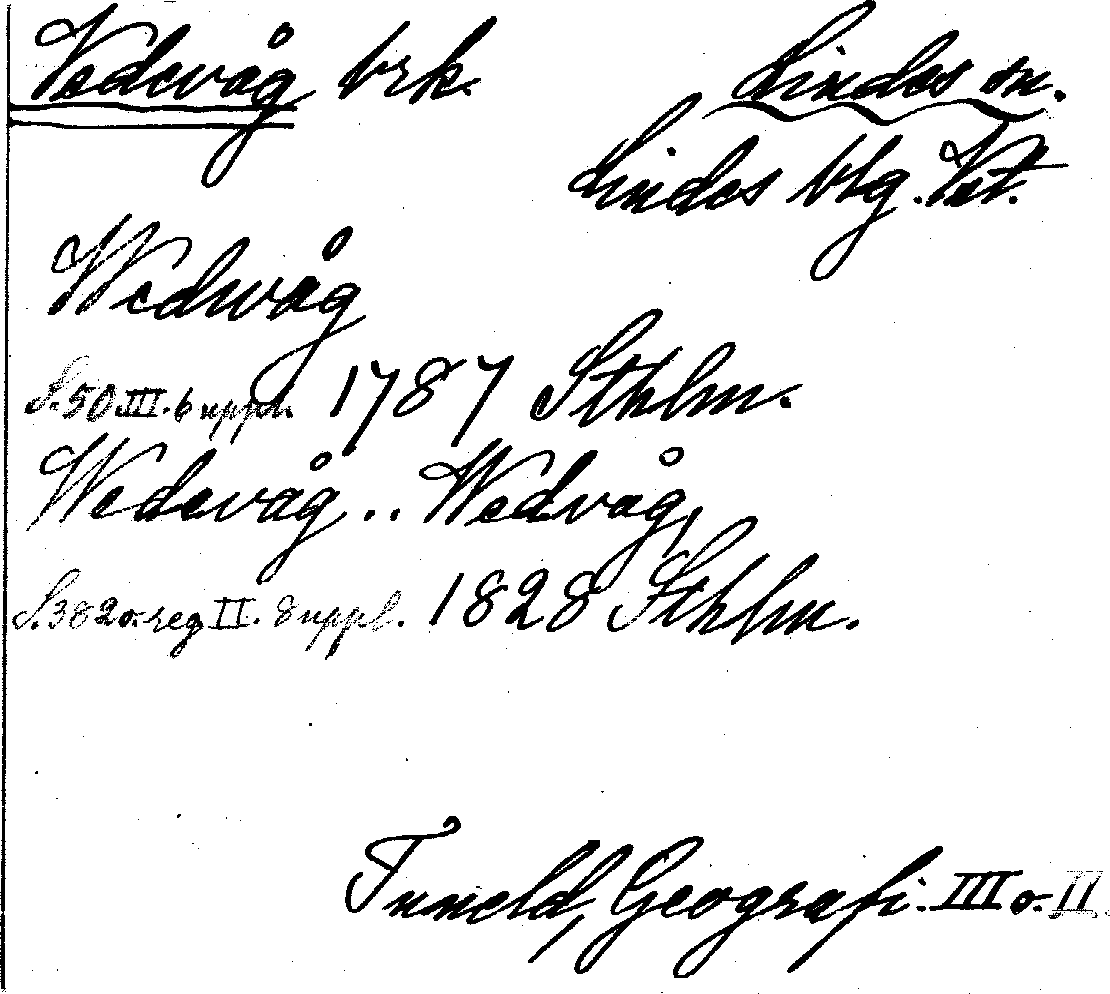 Vedevåg brk. Lindes sn.
Lindes btg. Vst.
Wedwåg
S. 50 III. 6 uppl. 1787 Sthlm.
Wedevåg .. Wedvåg,
S. 382 o. reg II. 8 uppl. 1828 Sthlm.
Tuneld, Geografi. III o. II.